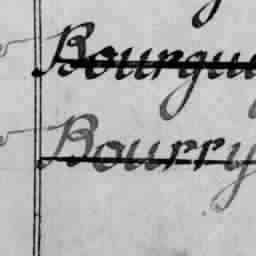 Bourgu
Bourry